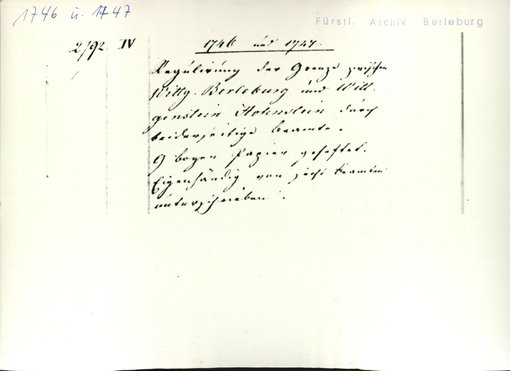 1746 u. 1747
Fürstl. Archiv Berleburg
2/92 IV
1746 und 1747.
Regulirung der Grenze zwischen
Wittg. Berleburg und Witt
genstein Hohnstein durch
beiderseitige Beamte.
9 bogen Papier geheftet.
Eigenhändig von sechs beamten
unterschrieben.